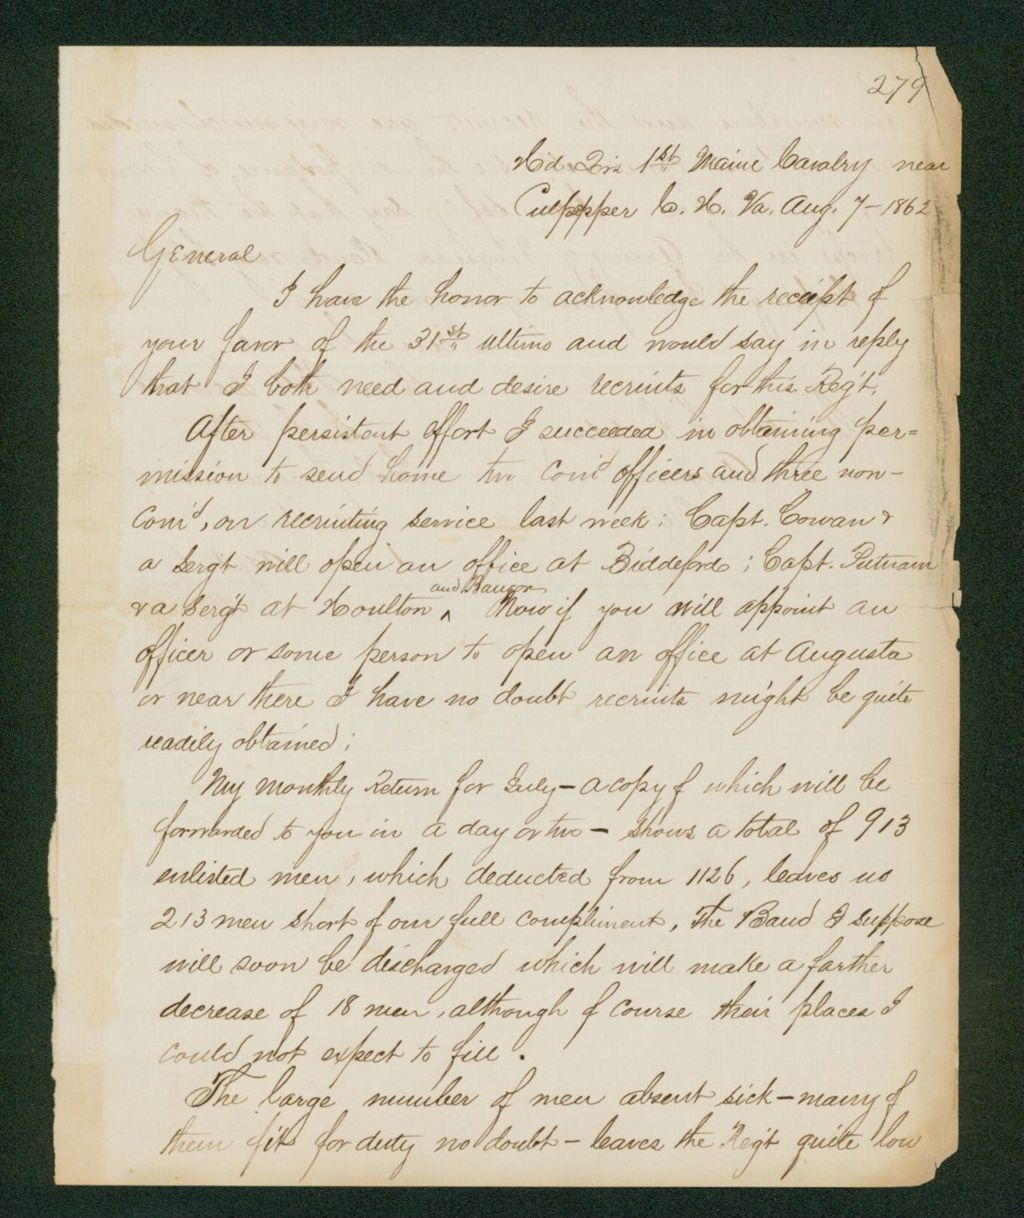 279
Hd Qrs 1st Maine Cavalry near
Culpepper C. H. Va. Aug. 7-1862
General
I have the honor to acknowledge the receipt of
your favor of the 31st ultimo and would say in reply
that I both need and desire recruits for this Reg't.
After persistent effort I succeeded in obtaining per=
mission to send home two com'd officers and three non-
com'd, on recruiting service last week: Capt. Cowan &
a Sergt will open an office at Biddeford; Capt. Putnam
& a Serg't at Houlton ^ and Bangor Now if you will appoint an
officer or some person to open an office at Augusta
or near there I have no doubt recruits might be quite
readily obtained;
My monthly Return for July - a copy of which will be
forwarded to you in a day or two - shows a total of 913
enlisted men, which deducted from 1126, leaves us
213 men short of our full compliment. The Band I suppose
will soon be discharged which will make a farther
decrease of 18 men, although of course their places I
could not expect to fill.
The large number of men absent sick - many of
them fit for duty no doubt - leaves the Reg't quite low